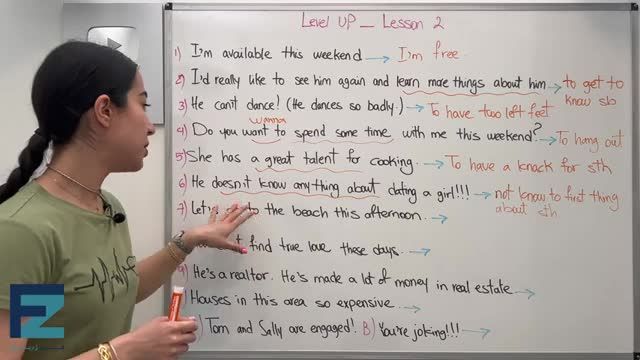 Level UP _ Lesson 2
1) I'm available this weekend → I'm free.
2) I'd really like to see him again and learn more things about him → to get to know sb
3) He can't dance! (He dances so badly.) → To have two left feet
wanna
4) Do you want to spend some time with me this weekend? → To hang out
5) She has a great talent for cooking. → To have a knack for sth
6) He doesn't know anything about dating a girl!!! → not know to first thing about sth
7) Let's to the beach this afternoon. →
find true love these days. →
9) He's a realtor. He's made a lot of money in real estate →
Houses in this area so expensive. →
) Tom and Sally are engaged! B) You're joking!!! →
EZ